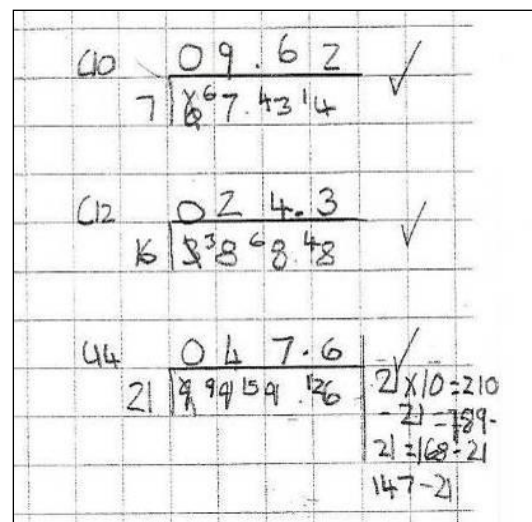 C10 09.62
7 6 ⁶7.⁴3¹4
C12 024.3
16 3 ³8 ⁶8.⁴8
C14 047.6
21 9 ⁹9 ¹⁵9.¹²6
21 x10=210
-21 =189-
21=168-21
147-21